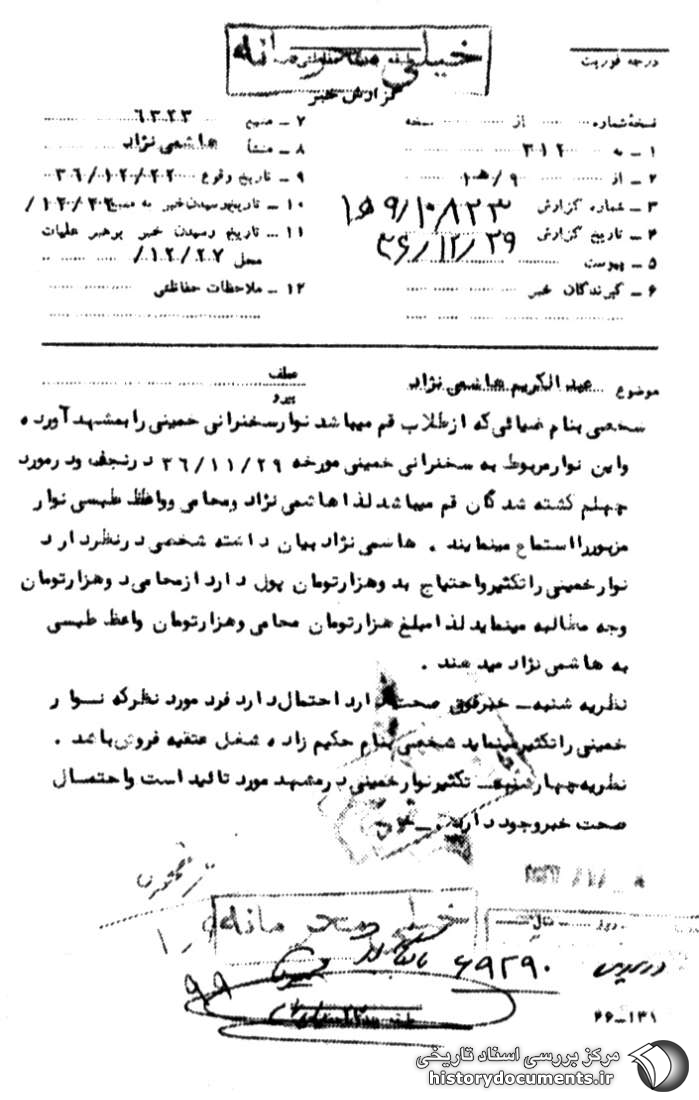 خیلی محرمانه
درجه فوریت
گزارش خبر
نسخهٔ شماره از نسخه
۱ ـ به ۳۱۲
۲ ـ از ۹/ه۱
۳ ـ شماره گزارش ۱۵۹/۱۰۸۲۳
۴ ـ تاریخ گزارش ۳۶/۱۲/۲۹
۵ ـ پیوست
۶ ـ گیرندگان خبر
۷ ـ منبع ۶۳۲۳
۸ ـ منشأ هاشمی نژاد
۹ ـ تاریخ وقوع ۳۶/۱۲/۲۲
۱۰ ـ تاریخ رسیدن خبر به منبع ۱۲/۲۲/
۱۱ ـ تاریخ رسیدن خبر برهبر عملیات
محل ۱۲/۲۷/
۱۲ ـ ملاحظات حفاظتی
موضوع عبدالکریم هاشمی نژاد
عطف
پیرو
شخصی بنام ضیائی که از طلاب قم میباشد نوار سخنرانی خمینی را بمشهد آورده
و این نوار مربوط به سخنرانی خمینی مورخه ۳۶/۱۱/۲۹ در نجف و در مورد
چهلم کشته شدگان قم میباشد لذا هاشمی نژاد و محامی و واعظ طبسی نوار
مزبور را استماع مینمایند . هاشمی نژاد بیان داشته شخصی در نظر دارد
نوار خمینی را تکثیر و احتیاج بدو هزار تومان پول دارد از محامی دو هزار تومان
وجه مطالبه مینماید لذا مبلغ هزار تومان محامی و هزار تومان واعظ طبسی
به هاشمی نژاد میدهند .
نظریه شنبه ـ خبر فوق صحت دارد احتمال دارد فرد مورد نظر که نوار
خمینی را تکثیر مینماید شخصی بنام حکیم زاده شغل عتیقه فروش باشد .
نظریه چهارشنبه ـ تکثیر نوار خمینی در مشهد مورد تائید است و احتمال
صحت خبر وجود دارد .
خیلی محرمانه
۶۹۲۹۰
۹۹
۶۶ـ۱۳۱
مرکز بررسی اسناد تاریخی
historydocuments.ir